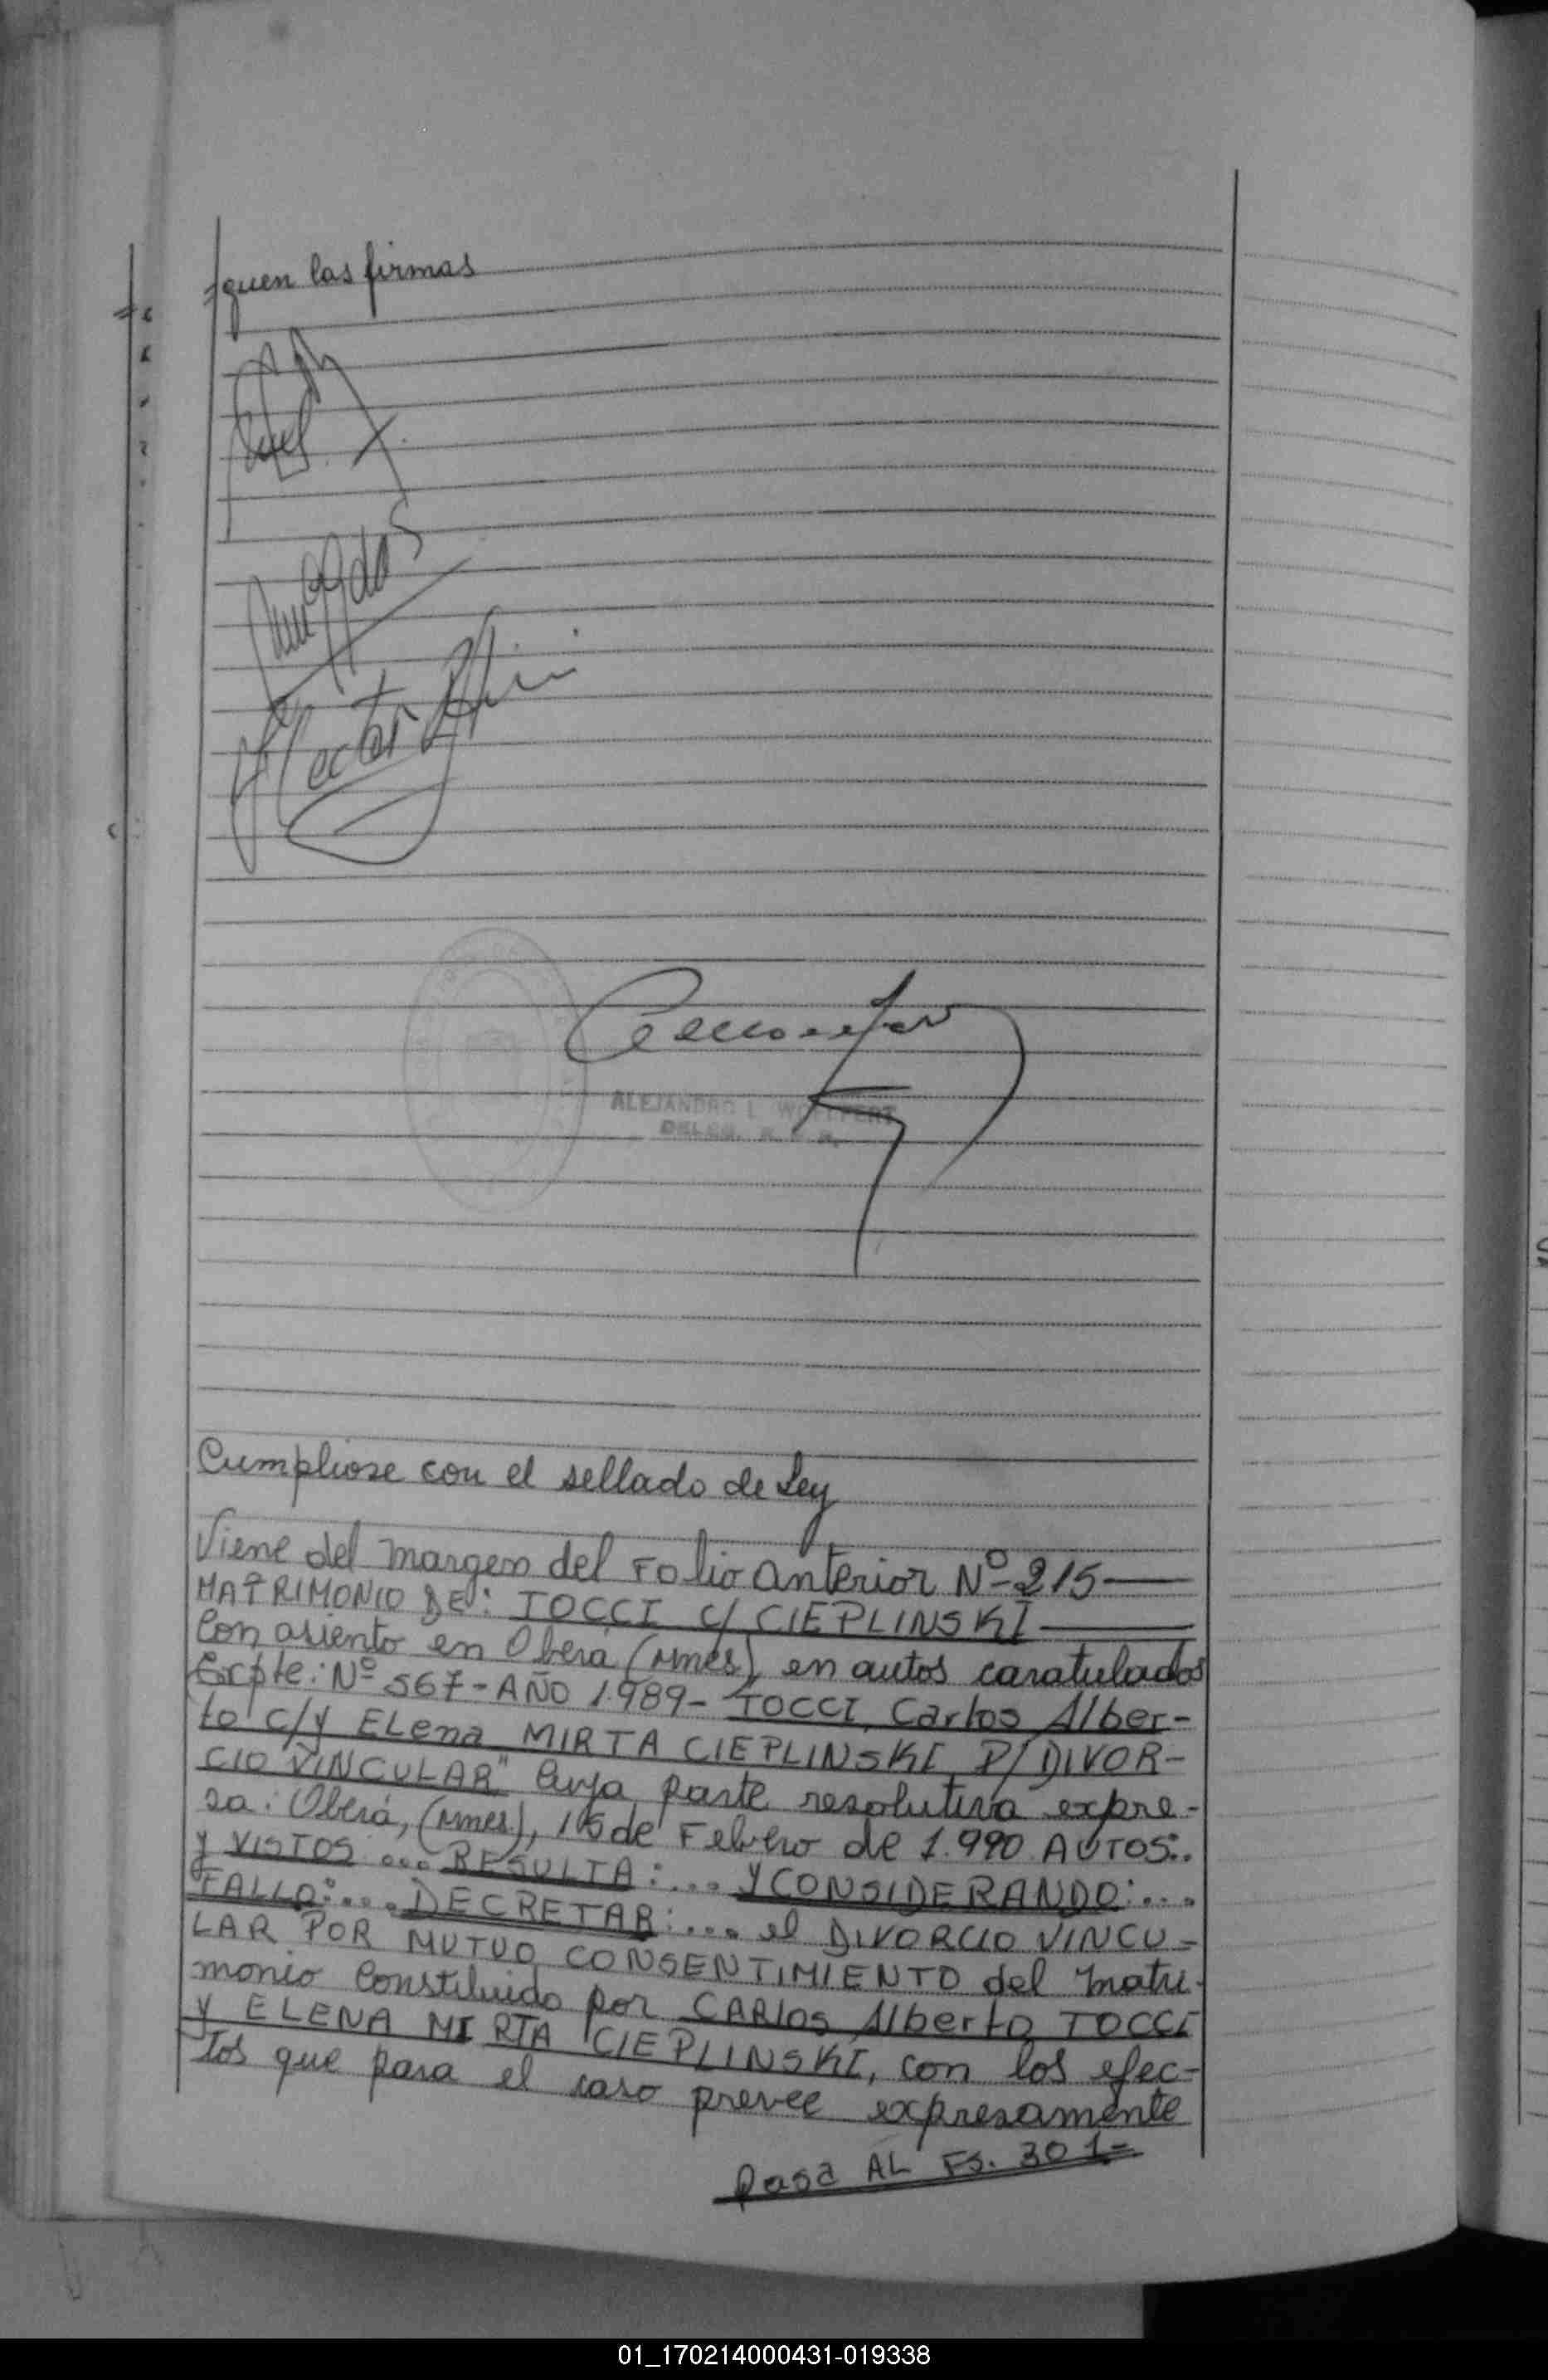 guen las firmas
Hector
ALEJANDRO L
Cumpliose con el sellado de Ley
Viene del margen del Folio anterior Nº 215
MATRIMONIO DE: TOCCI c/ CIEPLINSKI
Con asiento en Oberá (Mnes), en autos caratulados
Expte: Nº 567-AÑO 1.989- TOCCI, Carlos Alber-
to c/y ELena MIRTA CIEPLINSKI P/DIVOR-
CIO VINCULAR" Cuya parte resolutiva expre-
sa: Oberá, (Mnes), 15 de Febrero de 1.990 AUTOS:.
y VISTOS ... RESULTA:.... Y CONSIDERANDO:....
FALLO:.... DECRETAR:.... el DIVORCIO VINCU-
LAR POR MUTUO CONSENTIMIENTO del matri-
monio Constituido por CARlos Alberto TOCCI
Y ELENA MIRTA CIEPLINSKI, con los efec-
tos que para el caso prevee expresamente
Pasa AL FS. 301=
01_170214000431-019338